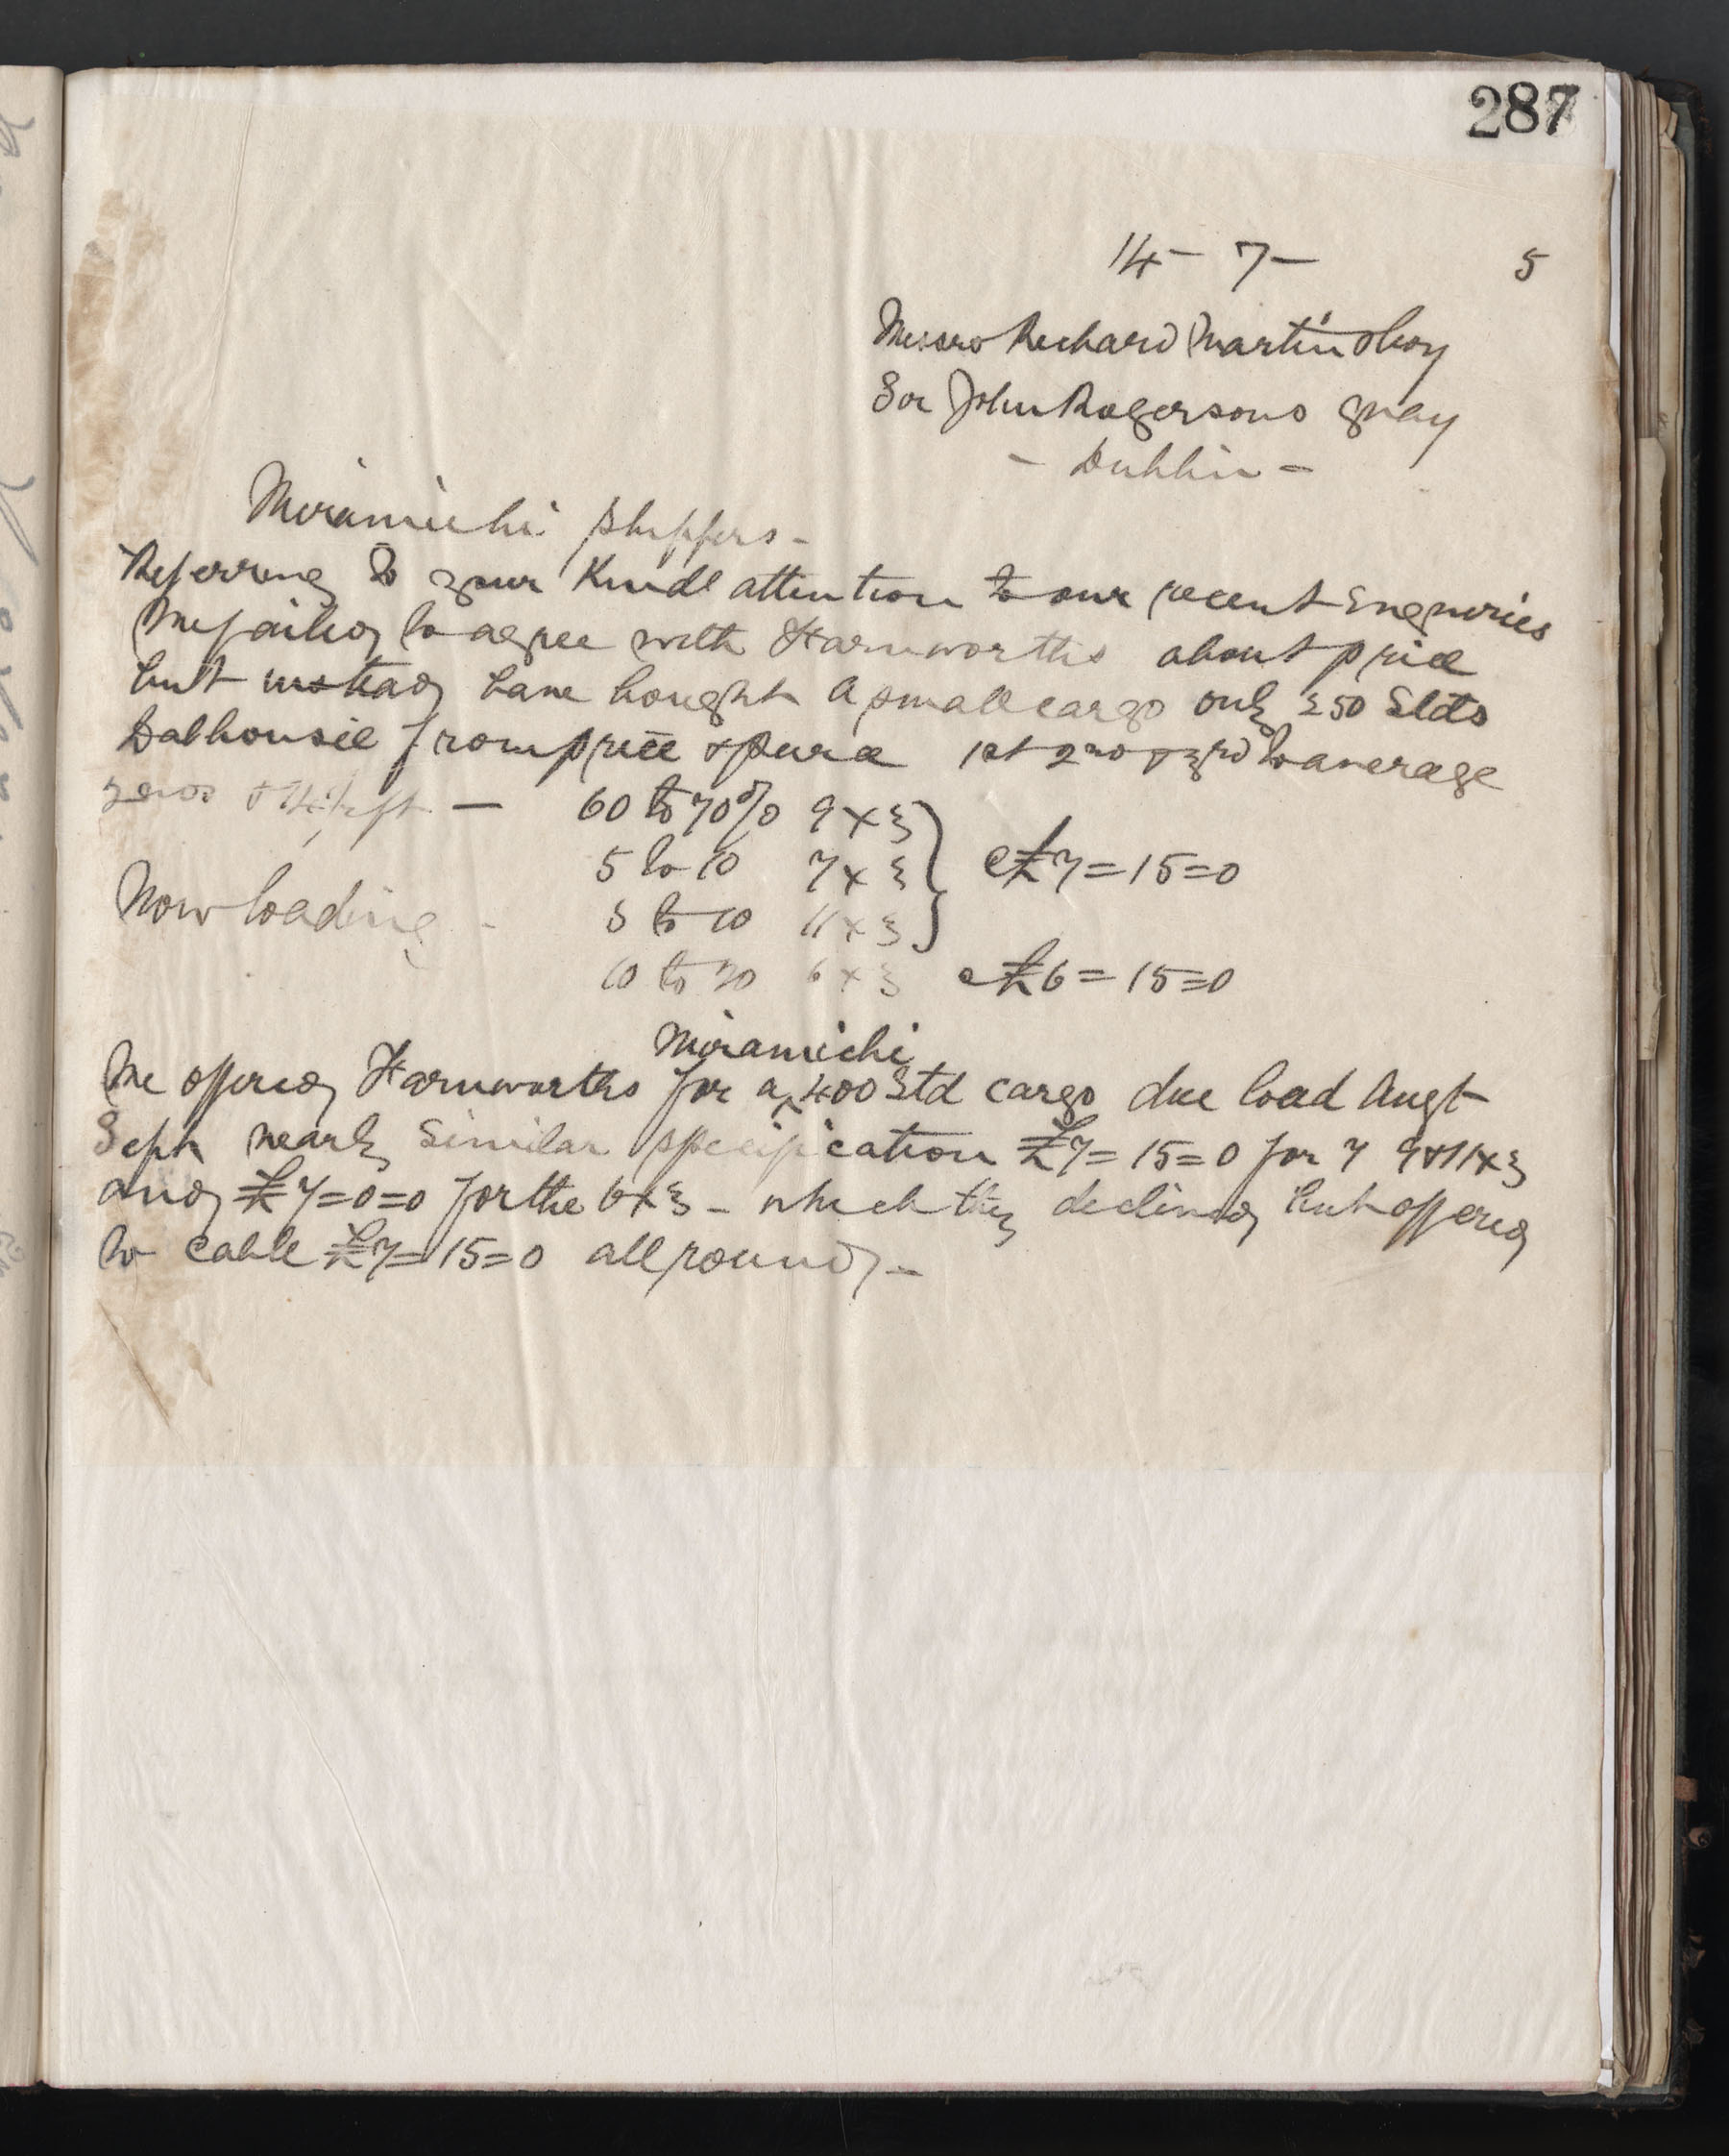 287
14 - 7 - 5
Messrs Richard Martin & Coy
Sir John Rogersons Quay
- Dublin -
Miramichi Shippers -
Referring to your Kind attention to our recent Enquiries
We failed to agree with Harnworths about price
but instead have bought a small cargo only 250 Stds
Dalhousie from price & pura 1st 2nd & 3rd to average
& 14/ ft - 60 to 70% 9 x 3
5 to 10 7 x 3 @ £7=15=0
Now loading - 5 to 10 11 x 3
10 to 20 6 x 3 @ £6=15=0
Miramichi
We offered Harnworths for a ^ 400 Std cargo due load Augt
Sepr nearly Similar specification £7=15=0 for 7 9 & 11 x 3
and £7=0=0 for the 6 x 3 - which they declined but offered
to cable £7=15=0 all round -